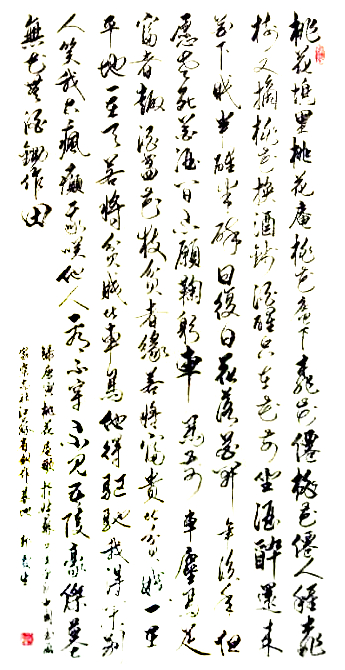 桃花塢里桃花庵桃花庵下桃花僊桃花僊人種桃
樹又摘桃花換酒錢酒醒只在花前坐酒醉還來
花下眠半醒半醉日復日花落花開年復年但
愿老死花酒間不願鞠躬車馬前車塵馬足
富者趣酒盞花枝貧者緣若將富貴比貧賤一在
平地一在天若將貧賤比車馬他得驅馳我得閑別
人笑我忒瘋癲我笑他人看不穿不見五陵豪傑墓
無花無酒鋤作田
錄唐寅桃花庵歌